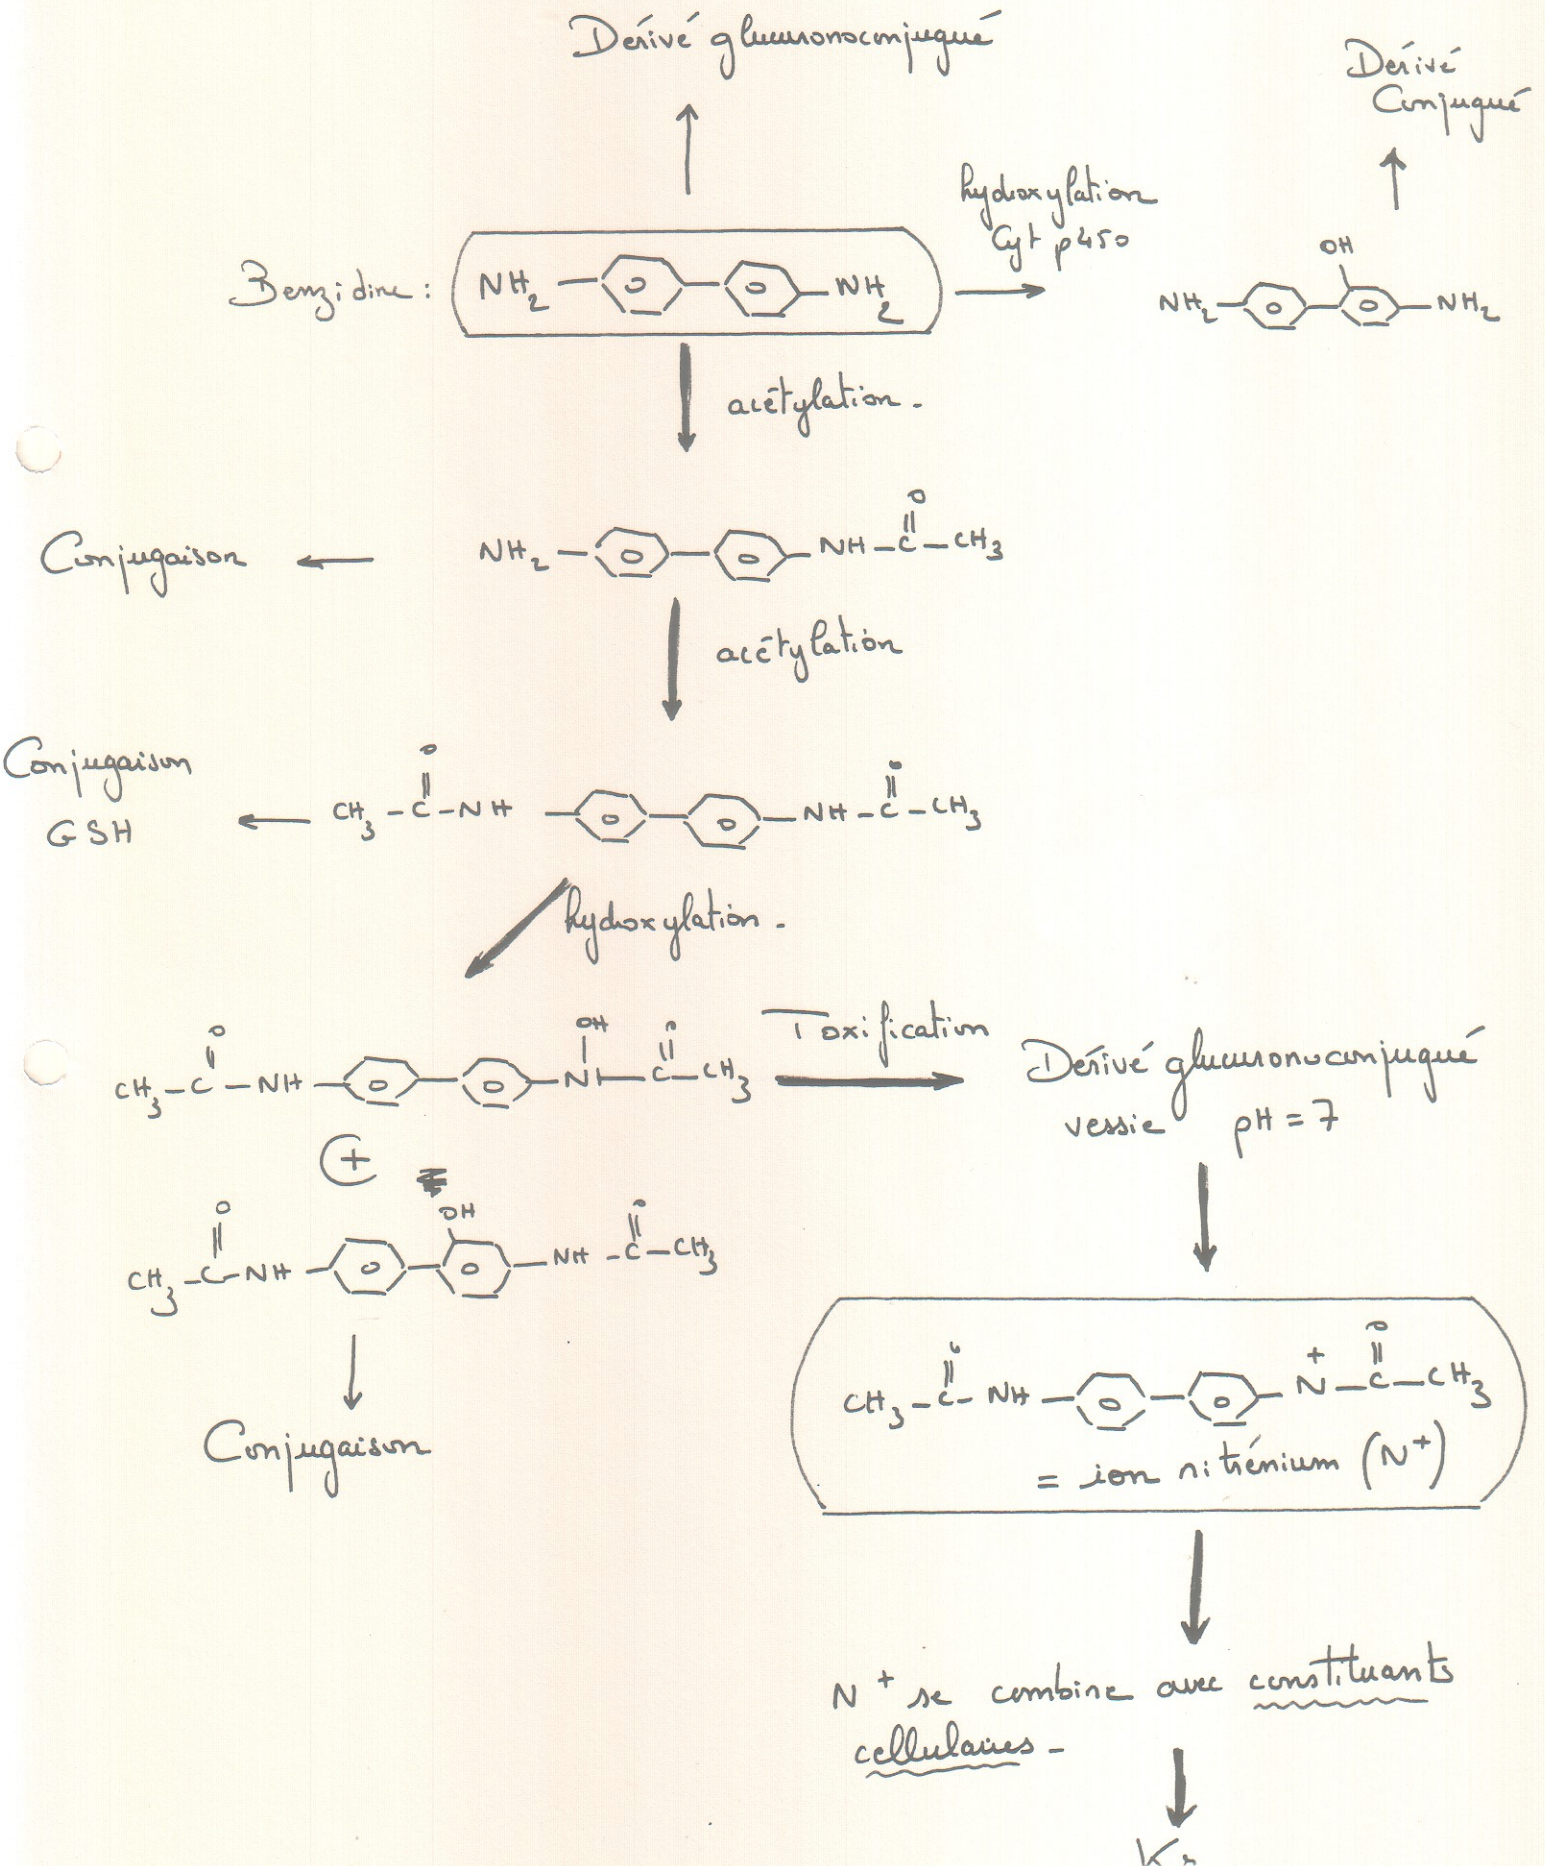 Dérivé glucuronoconjugué
Dérivé
Conjugué
hydroxylation
Cyt p450
Benzidine :
NH2
NH2
OH
NH2
NH2
acétylation.
Conjugaison
NH2
NH-C-CH3
O
acétylation
Conjugaison
GSH
O
CH3-C-NH
O
NH-C-CH3
hydroxylation.
O
CH3-C-NH
OH
N-C-CH3
O
Toxification
Dérivé glucuronoconjugué
vessie pH = 7
+
O
CH3-C-NH
OH
NH-C-CH3
O
Conjugaison
O
CH3-C-NH
+
N-C-CH3
O
= ion nitrénium (N+)
N+ se combine avec constituants
cellulaires -